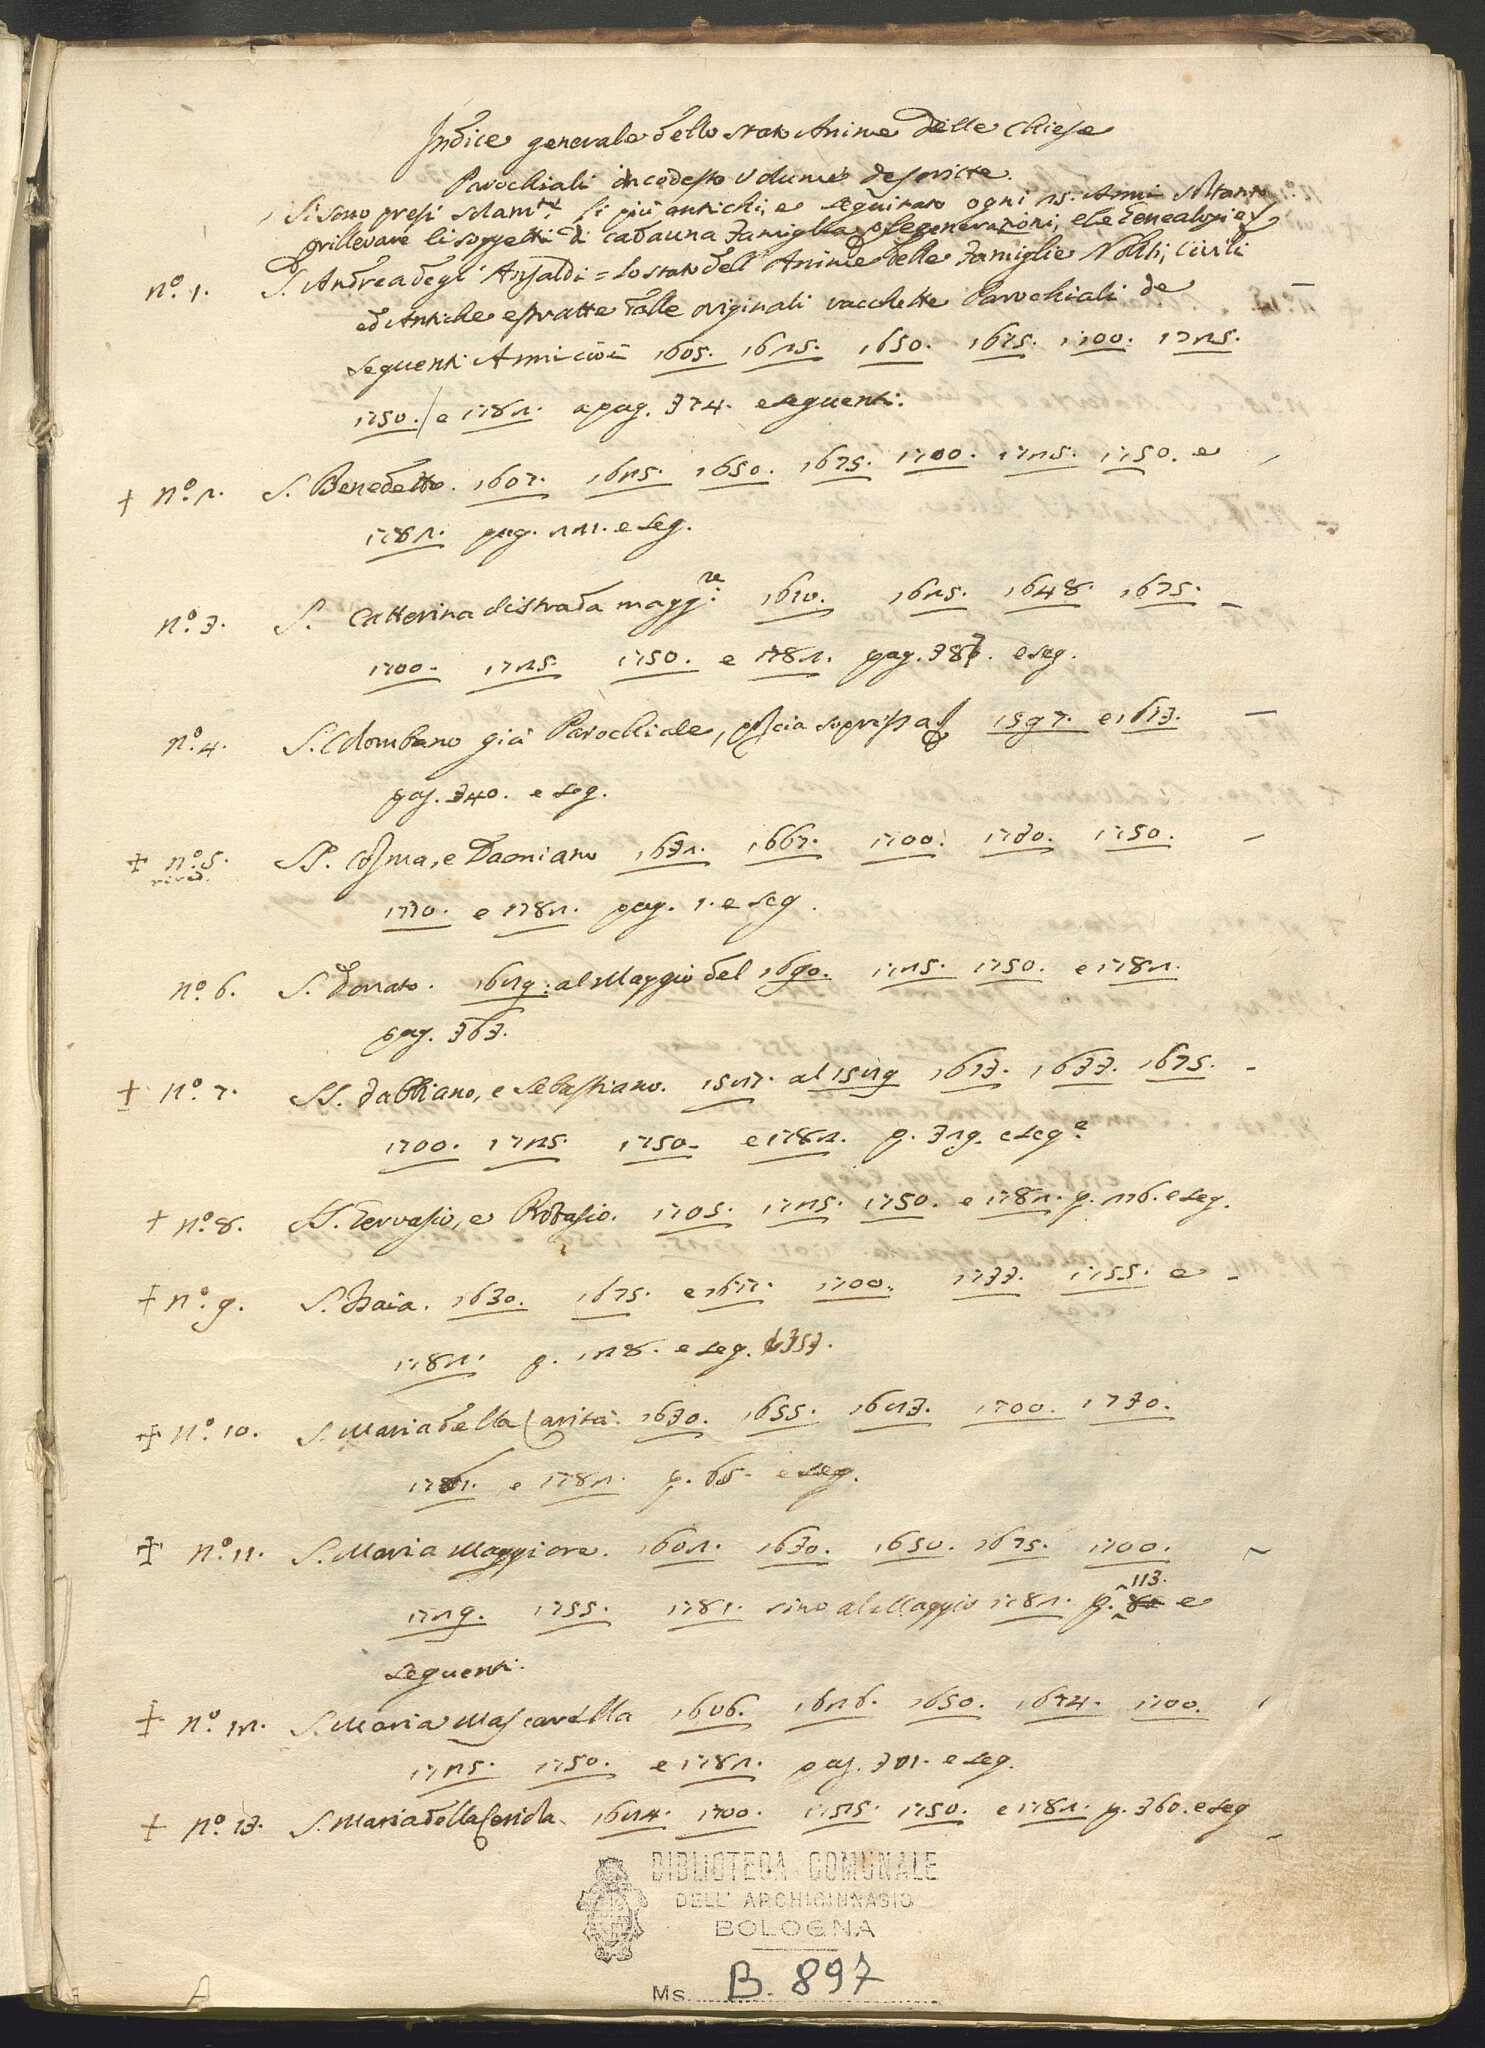 Indice generale dello stato Anime delle Chiese
Parochiali in codesto Volume descritte.
Si sono presi solam.te li più antichi, e seguitato ogni 25. Anni soltanto
p rillevare li soggetti di cadauna Famiglia, e le generazioni, e le Genealogie
n.o 1. S. Andrea degl'Ansaldi = Lo stato dell'Anime delle Famiglie Nobili, Civili
ed Antiche estratte dalle originali vacchette Parochiali de
seguenti Anni cioè 1605. 1625. 1650. 1675. 1700. 1725.
1750. / e 1782. a pag. 374. e seguenti.
+ n.o 2. S. Benedetto. 1607. 1625. 1650. 1675. 1700. 1725. 1750. e
1782. pag. 221. e seg.
n.o 3. S. Catterina di strada magg.re 1610. 1625. 1648. 1675.
1700. 1725. 1750. e 1782. pag. 387. e seg.
n.o 4. S. Colombano già Parochiale, poscia sopressa 1597. e 1613.
pag. 340. e seg.
+ n.o 5. SS. Cosma, e Damiano 1632. 1667. 1700. 1730. 1750.
rived.
1770. e 1782. pag. 1. e seg.
n.o 6. S. Donato. 1629. al Maggio del 1690. 1725. 1750. e 1782.
pag. 363.
+ n.o 7. SS. Fabbiano, e Sebastiano. 1527. al 1529 1613. 1633. 1675.
1700. 1725. 1750. e 1782. p. 329. e seg.e
+ n.o 8. SS. Gervasio, e Protasio. 1705. 1725. 1750. e 1782. p. 276. e seg.
+ n.o 9. S. Isaia. 1630. 1675. e 1677. 1700. 1733. 1755. e
1782. p. 128. e seg. 353.
+ n.o 10. S. Maria della Carità. 1630. 1655. 1673. 1700. 1730.
1761. e 1782. p. 65. e seg.
+ n.o 11. S. Maria Maggiore. 1602. 1630. 1650. 1675. 1700.
1729. 1755. 1781. sino al Maggio 1782. p. 113. e
seguenti.
+ n.o 12. S. Maria Mascarella 1606. 1626. 1650. 1674. 1700.
1725. 1750. e 1782. pag. 301. e seg.
+ n.o 13. S. Maria della Ceriola. 1624. 1700. 1725. 1750. e 1782. p. 360. e seg
BIBLIOTECA COMUNALE
DELL' ARCHIGINNASIO
BOLOGNA
Ms. B. 897